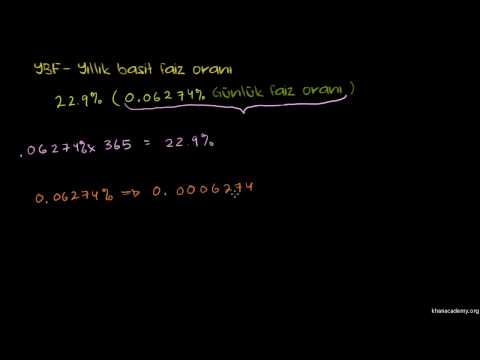 YBF - Yıllık basit faiz oranı
22.9% (0.06274% Günlük faiz oranı)
.06274% x 365 = 22.9%
0.06274% ⇒ 0.0006274
khanacademy.org